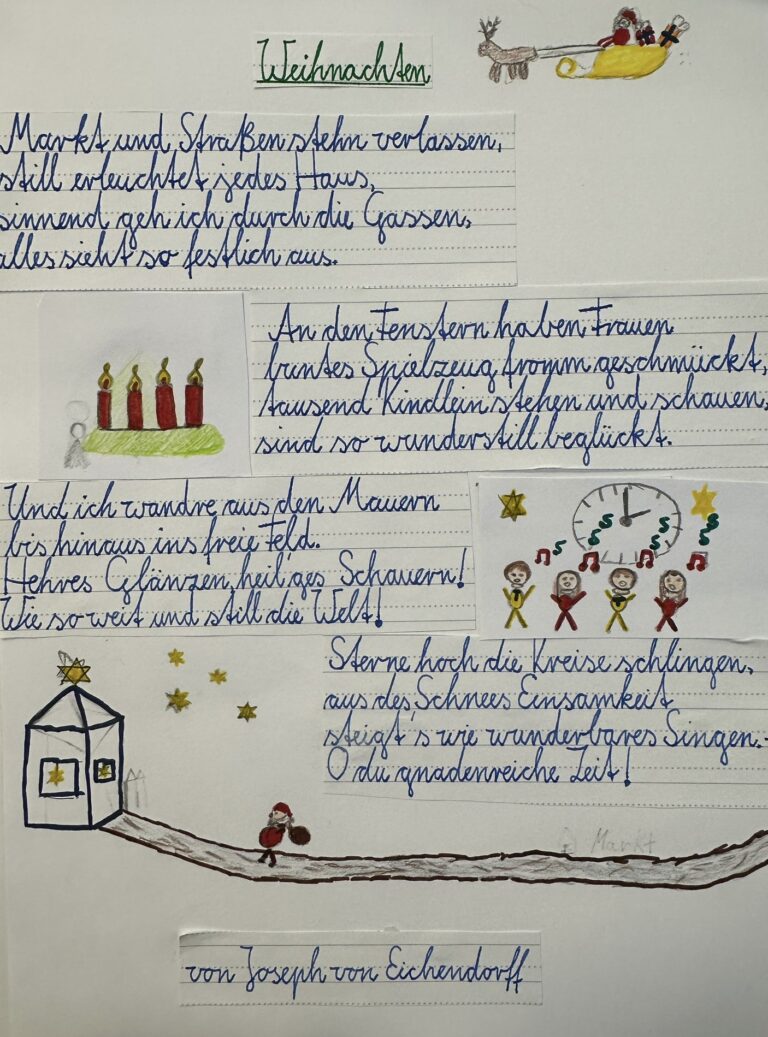 Weihnachten
Markt und Straßen stehn verlassen,
still erleuchtet jedes Haus,
sinnend geh ich durch die Gassen,
alles sieht so festlich aus.
An den Fenstern haben Frauen
buntes Spielzeug fromm geschmückt,
tausend Kindlein stehen und schauen,
sind so wunderstill beglückt.
Und ich wandre aus den Mauern
bis hinaus ins freie Feld.
Hehres Glänzen, heil'ges Schauern!
Wie so weit und still die Welt!
Sterne hoch die Kreise schlingen,
aus des Schnees Einsamkeit
steigt's wie wunderbares Singen.-
O du gnadenreiche Zeit!
Markt
von Joseph von Eichendorff